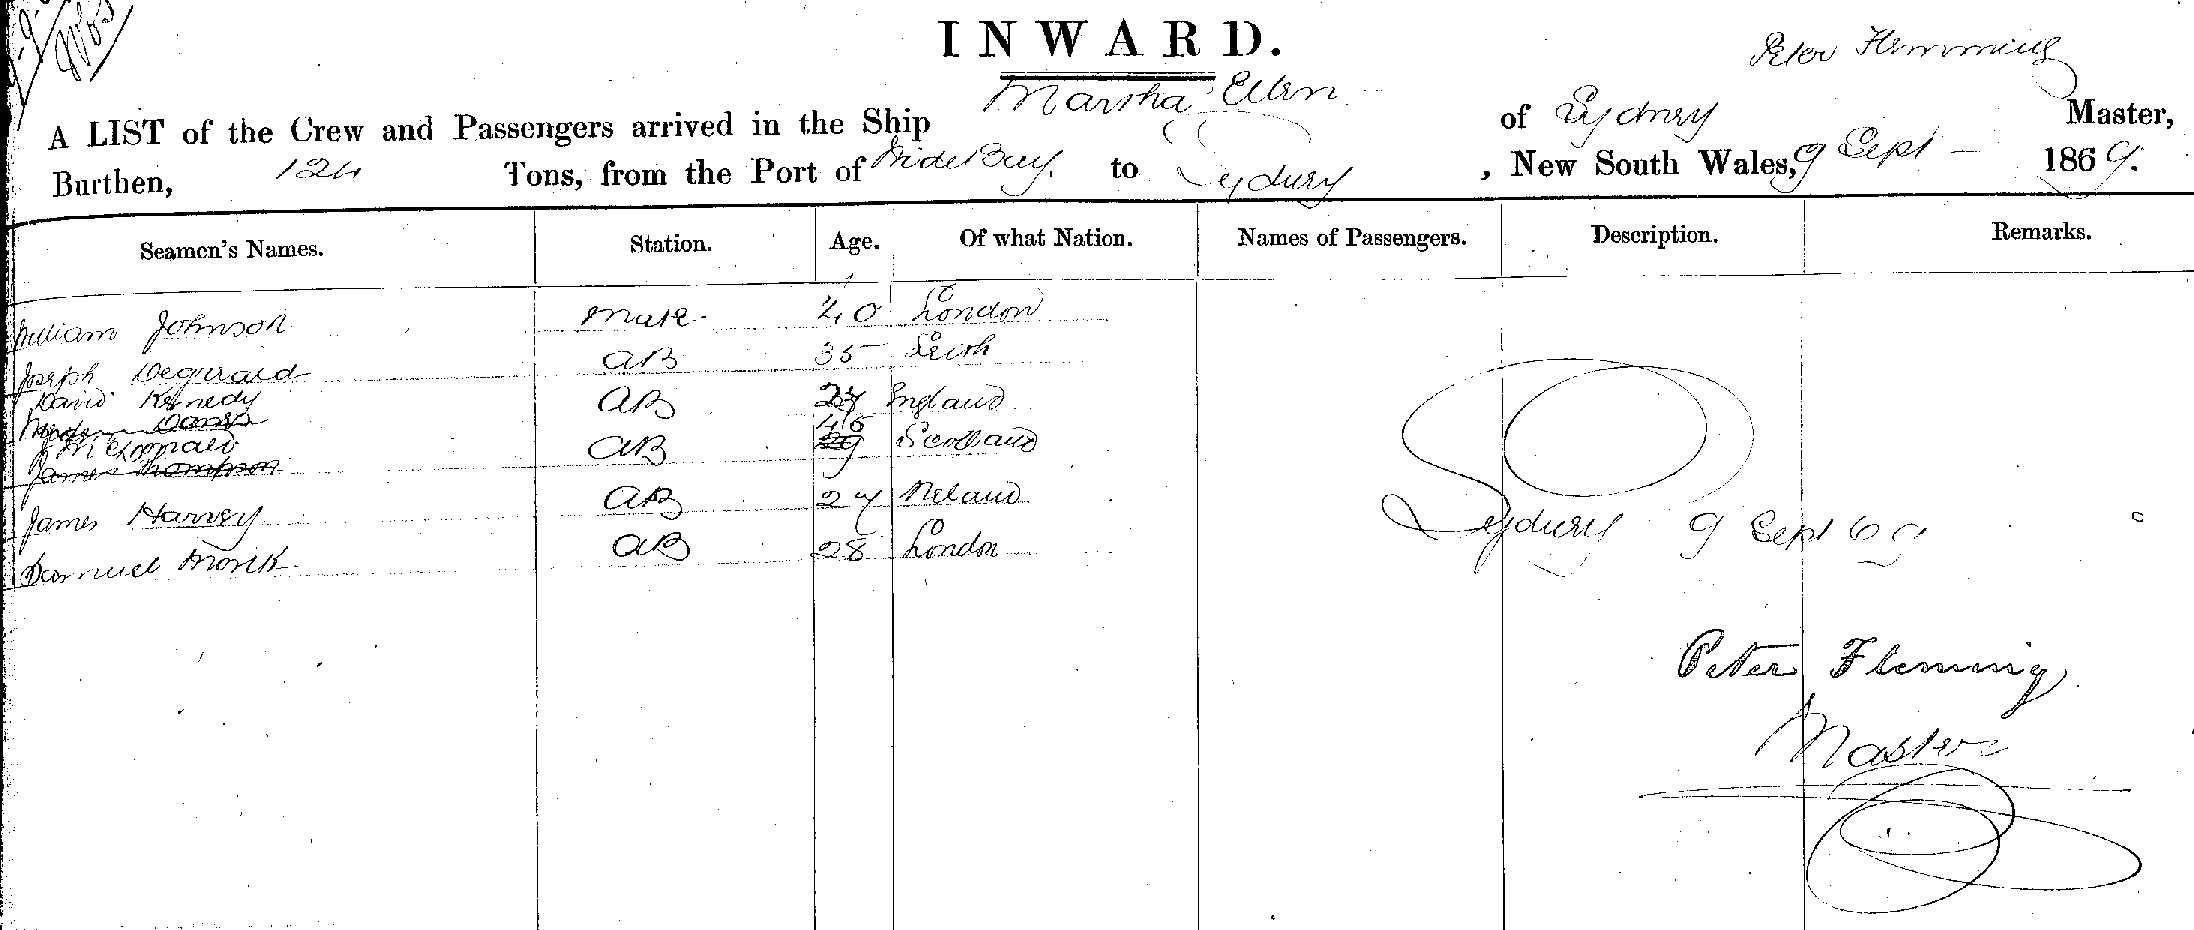 INWARD.
Peter Flemming
Marsha Ellen
A LIST of the Crew and Passengers arrived in the Ship of Sydney Master,
Burthen, 124 Tons, from the Port of Wide Bay to Sydney, New South Wales, 9 Sept 1869.
Seamen's Names. Station. Age. Of what Nation. Names of Passengers. Description. Remarks.
William Johnson Mate 40 London
Joseph AB 35 Leith
David Kennedy AB England
J McDonald AB 45 Scotland
James Thompson
James Harvey AB 27 Ireland
Samuel Monk AB 28 London
Sydney 9 Sept 69
Peter Fleming
Master